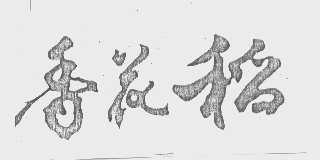 稻花香